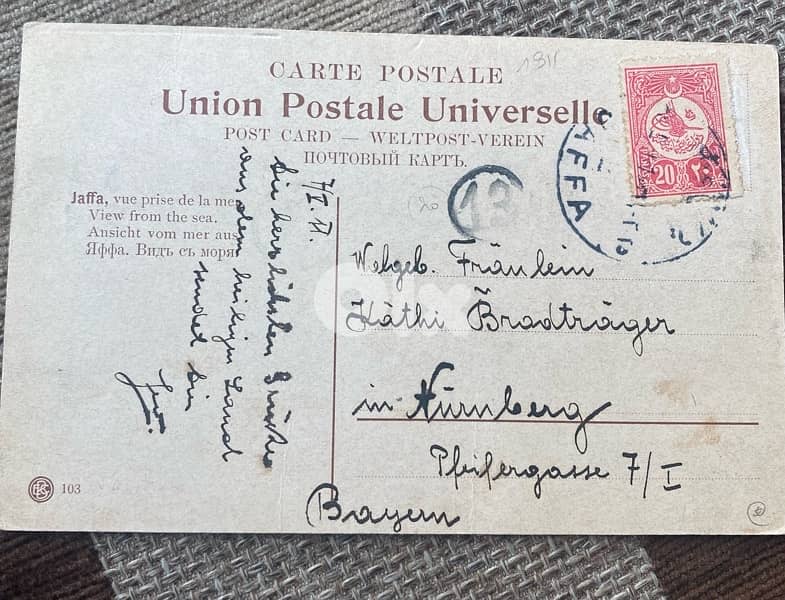 1911
CARTE POSTALE
Union Postale Universelle
POST CARD — WELTPOST-VEREIN
ПОЧТОВЫЙ КАРТЪ.
Jaffa, vue prise de la mer
View from the sea.
Ansicht vom mer aus
Яффа. Видъ съ моря
7/I. 11.
Die herzlichsten Grüße
aus dem heiligen Land
sendet Dir
JAFFA
20
٢٠
13
Wohgeb. Fräulein
Käthi Bradträger
in Nürnberg
Pfeifergasse 7/I
Bayern
103
olx